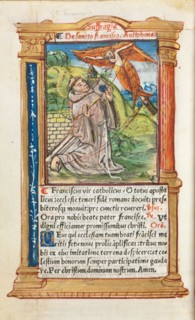 Suffragia
De sancto francisco. Antiphona.
Franciscus vir catholicus & totus aposto
licus ecclesie teneri fidē romane docuit: pres
biterosq; monuit: pre cunctis revereri.
Ora pro nobis beate pater francisce. Ut
digni efficiamur promissionibus christi.
Deus qui ecclesiam tuam beati francisci me
ritis fetu nove prolis amplificas: tribue no
bis ex eius imitatione terrena despicere: et ce
lestium donorum semper participatione gaude
re. Per christum dominum nostrum. Amen.